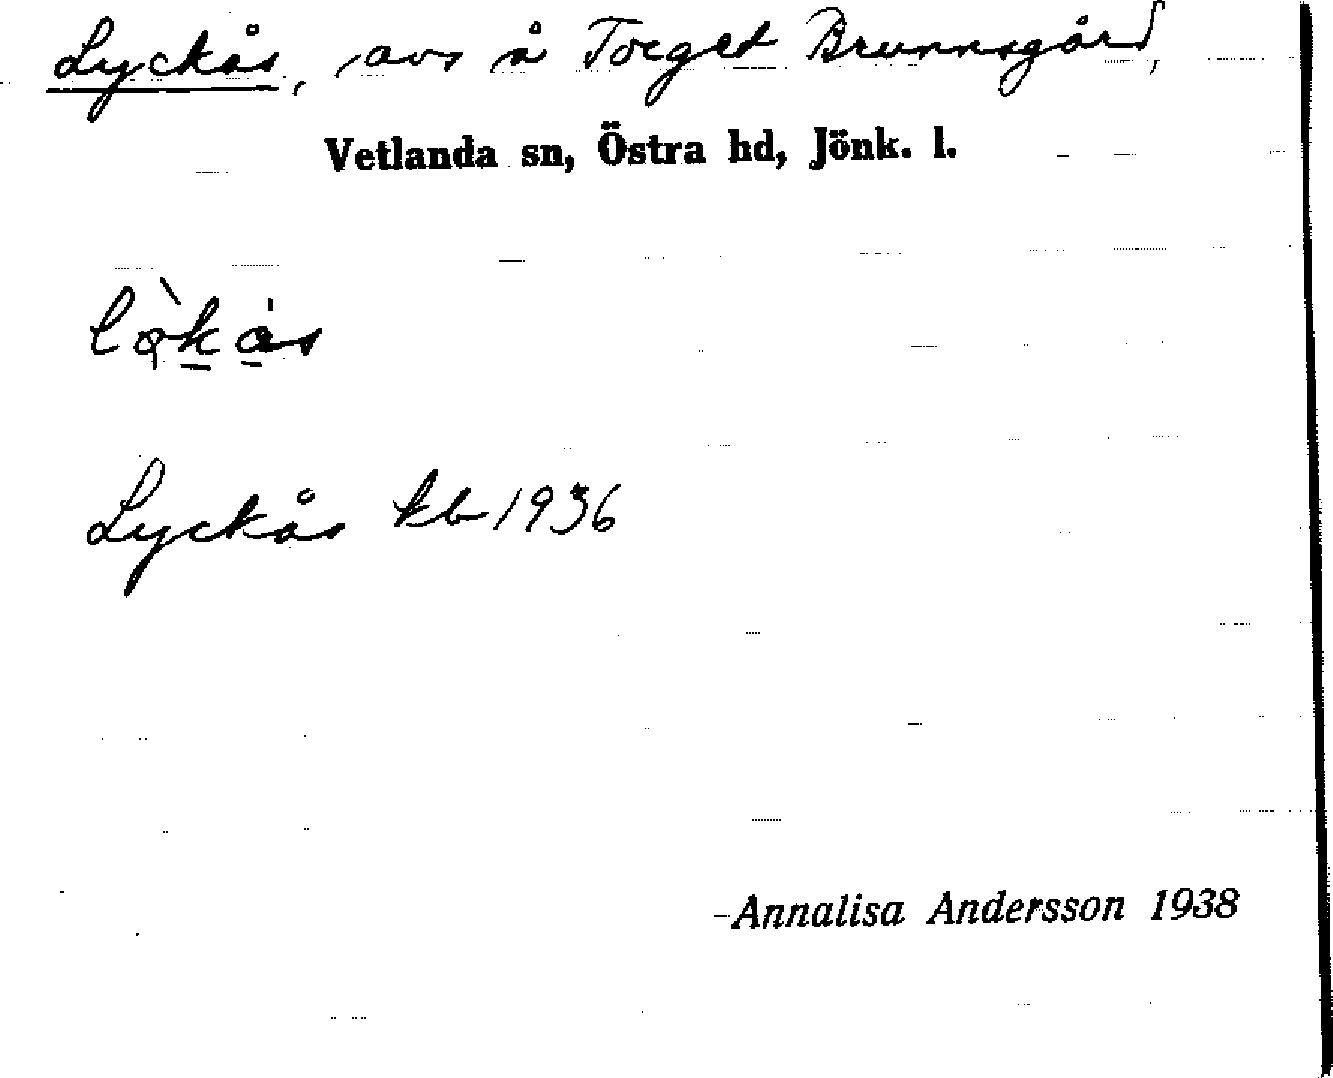 Lyckås, avs å Torget Brunnsgård,
Vetlanda sn, Östra hd, Jönk. l.
Lyckås kb 1936
Annalisa Andersson 1938